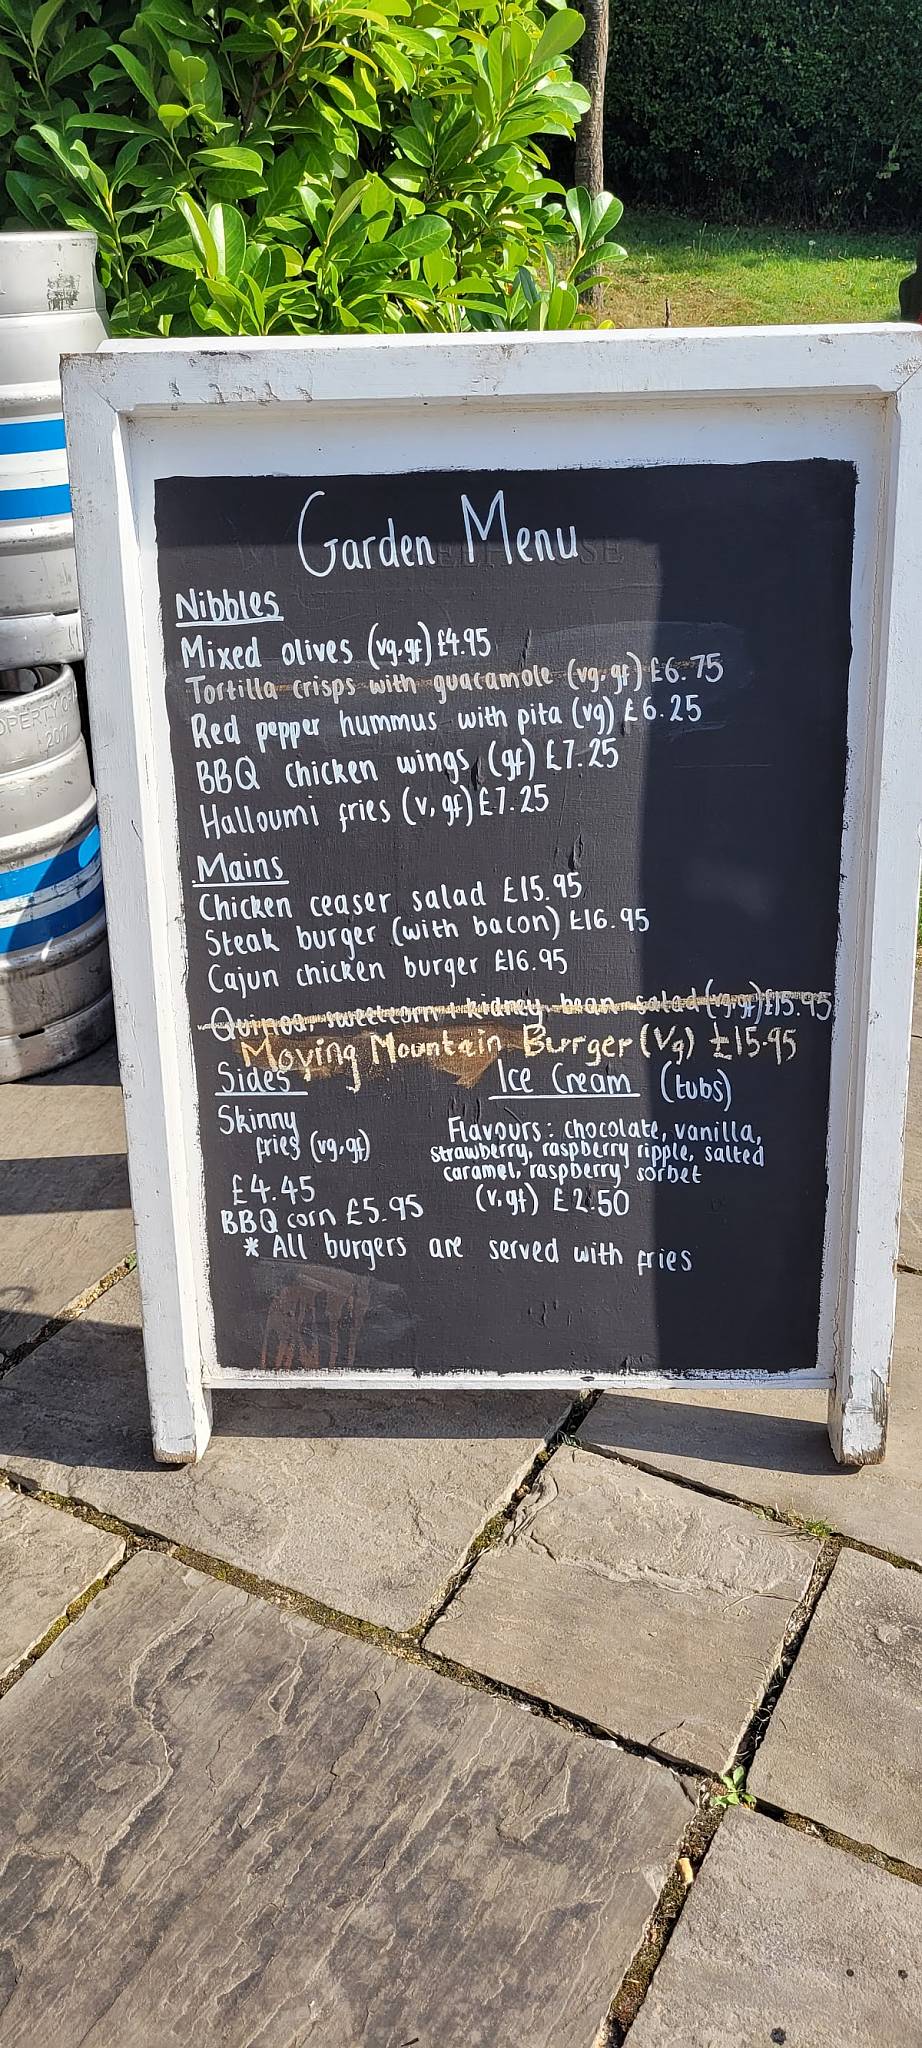 Garden Menu
Nibbles
Mixed olives (vg,gf) £4.95
Tortilla crisps with guacamole (vg,gf) £6.75
Red pepper hummus with pita (vg) £6.25
BBQ chicken wings (gf) £7.25
Halloumi fries (v, gf) £7.25
Mains
Chicken ceaser salad £15.95
Steak burger (with bacon) £16.95
Cajun chicken burger £16.95
Quinoa, sweetcorn kidney bean salad (vg,gf) £15.95
Moving Mountain Burger (Vg) £15.95
Sides
Skinny
fries (vg,gf)
£4.45
BBQ corn £5.95
Ice Cream (tubs)
Flavours: chocolate, vanilla,
strawberry, raspberry ripple, salted
caramel, raspberry sorbet
(v, gf) £2.50
* All burgers are served with fries
PROPERTY OF
2017